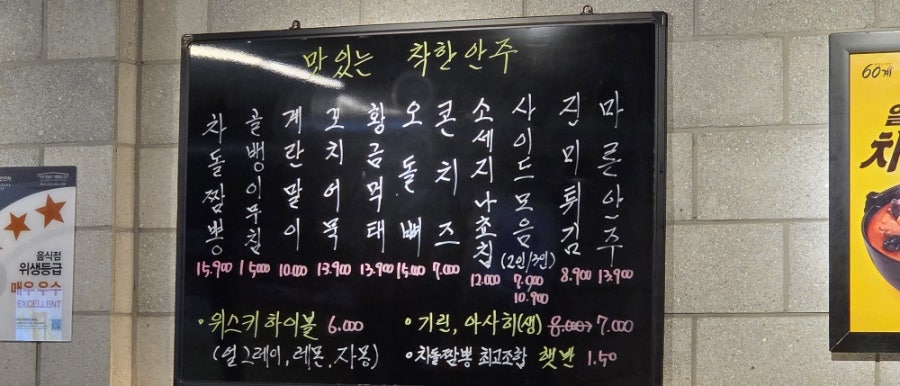 맛있는 착한안주
차돌짬뽕 15.900
골뱅이무침 15000
계란말이 10.000
꼬치어묵 13.900
황금먹태 13.900
오돌뼈 15.000
콘치즈 7.000
소세지나쵸칩 12.000
사이드모음 (2인/3인) 7.900 10.900
진미튀김 8.900
마른안주 13.900
• 위스키 하이볼 6.000
(얼그레이, 레몬, 자몽)
• 기린, 아사히(생) 8.000 7.000
• 차돌짬뽕 최고조합 햇반 1.50
음식점
위생등급
매우우수
EXCELLENT
60계